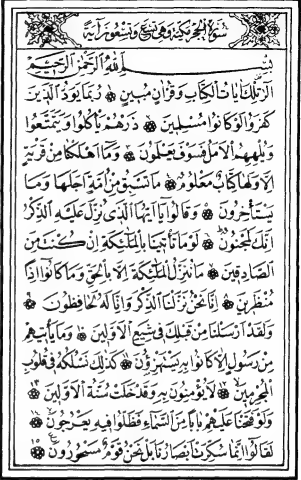 سورة الحجر مكية وهي تسع وتسعون آية
بسم الله الرحمن الرحيم
الر تلك آيات الكتاب وقرآن مبين ربما يود الذين
كفروا لو كانوا مسلمين ذرهم يأكلوا ويتمتعوا
ويلههم الأمل فسوف يعلمون وما أهلكنا من قرية
إلا ولها كتاب معلوم ما تسبق من أمة أجلها وما
يستأخرون وقالوا يا أيها الذي نزل عليه الذكر
إنك لمجنون لو ما تأتينا بالملائكة إن كنت من
الصادقين ما ننزل الملائكة إلا بالحق وما كانوا إذا
منظرين إنا نحن نزلنا الذكر وإنا له لحافظون
ولقد أرسلنا من قبلك في شيع الأولين وما يأتيهم
من رسول إلا كانوا به يستهزؤن كذلك نسلكه في قلوب
المجرمين لا يؤمنون به وقد خلت سنة الأولين
ولو فتحنا عليهم بابا من السماء فظلوا فيه يعرجون
لقالوا إنما سكرت أبصارنا بل نحن قوم مسحورون